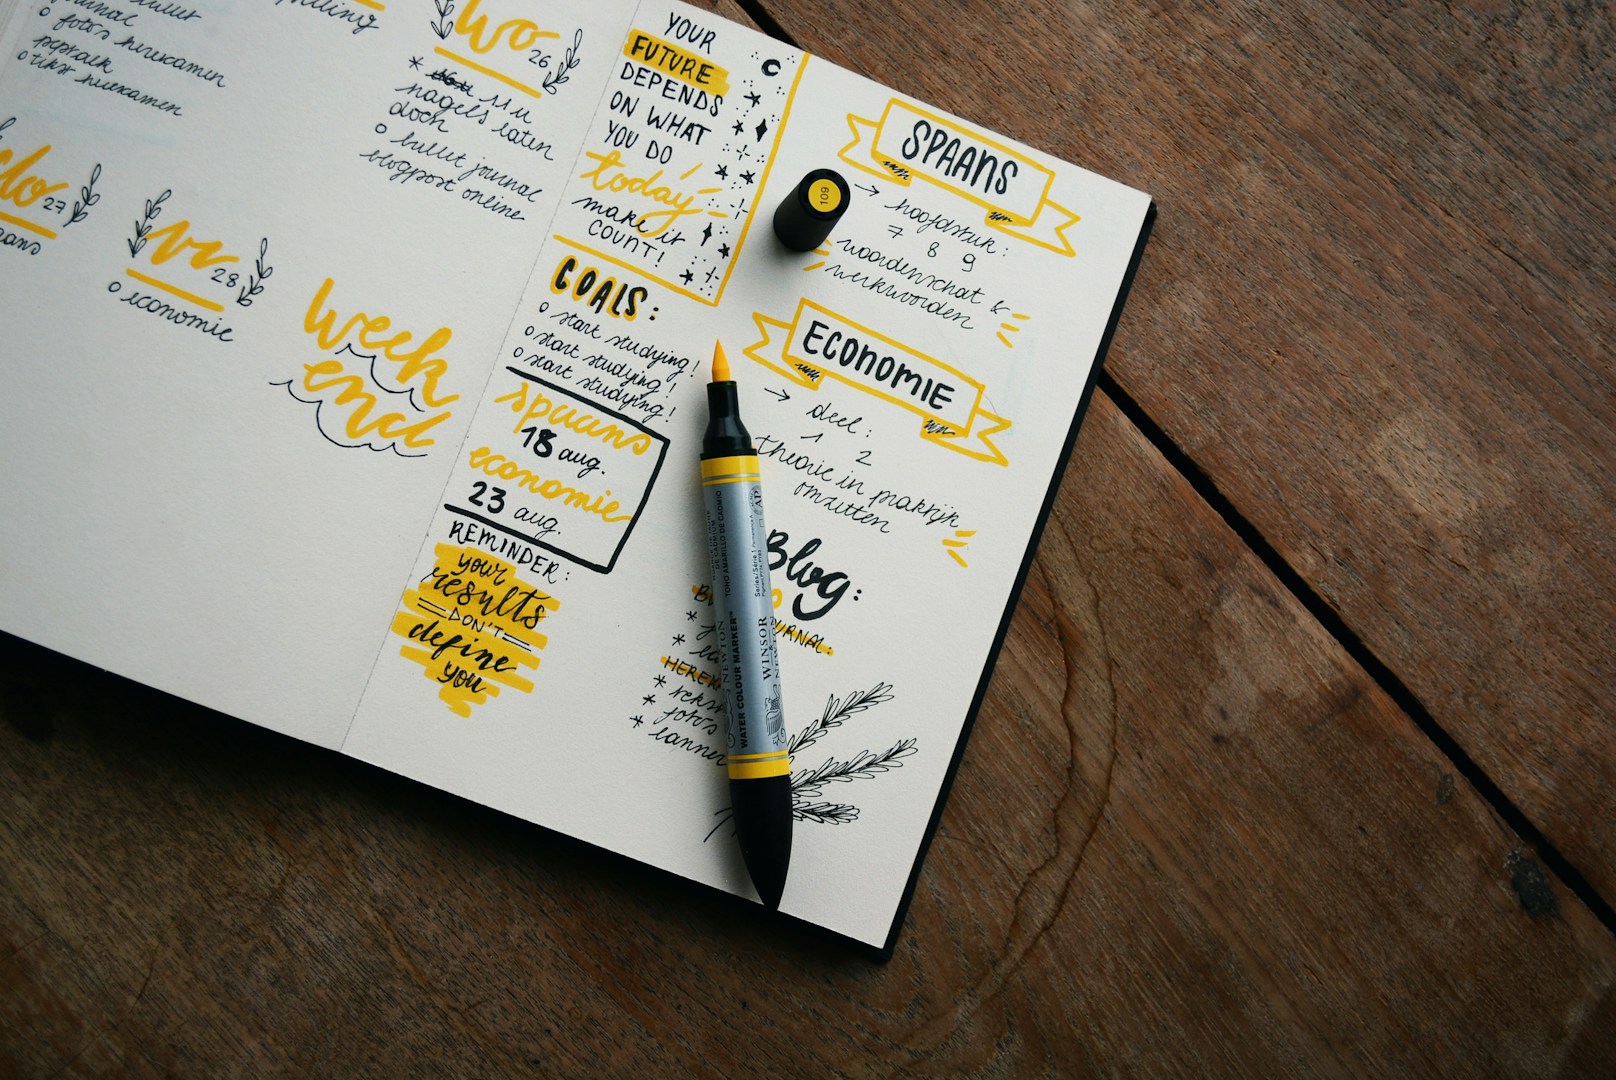 bullet
journal
o foto's herexamen
peptalk
o tekst herexamen
wo 26
* 11 u
nagels laten
doen
o bullet journal
blogpost online
do 27
vr 28
o economie
week
end
YOUR
FUTURE
DEPENDS
ON WHAT
YOU DO
today
make it
COUNT!
GOALS:
o start studying!
o start studying!
o start studying!
spaans
18 aug.
economie
23 aug.
REMINDER:
your
results
DON'T
define
you
SPAANS
→ hoofdstuk:
7 8 9
woordenschat &
werkwoorden
ECONOMIE
→ deel:
1 2
theorie in praktijk
omzetten
Blog:
JOURNAL:
HEREX
* tekst
* foto's
* banner
109
WATER COLOUR MARKER™
WINSOR
& NEWTON
TONO AMARILLO DE CADMIO
Series/Série 1
AP